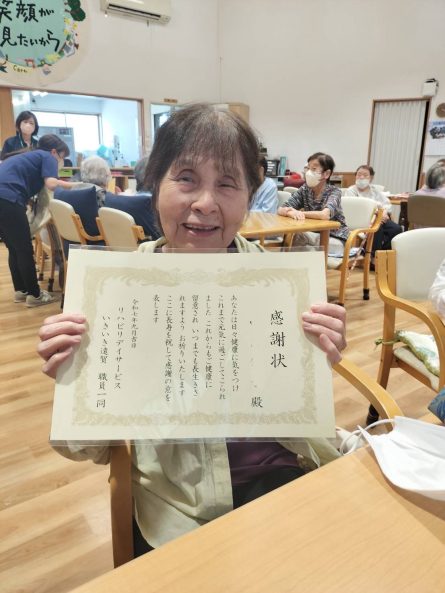 笑顔が
見たいから
感謝状
殿
あなたは日々健康に気をつけ
これまで元気に過ごしてこられ
ました これからもご健康に
留意され いつまでも長生きさ
れますよう お祈りいたします
ここに長寿を祝して感謝の意を
表します
令和七年九月吉日
リハビリデイサービス
いきいき遠賀 職員一同